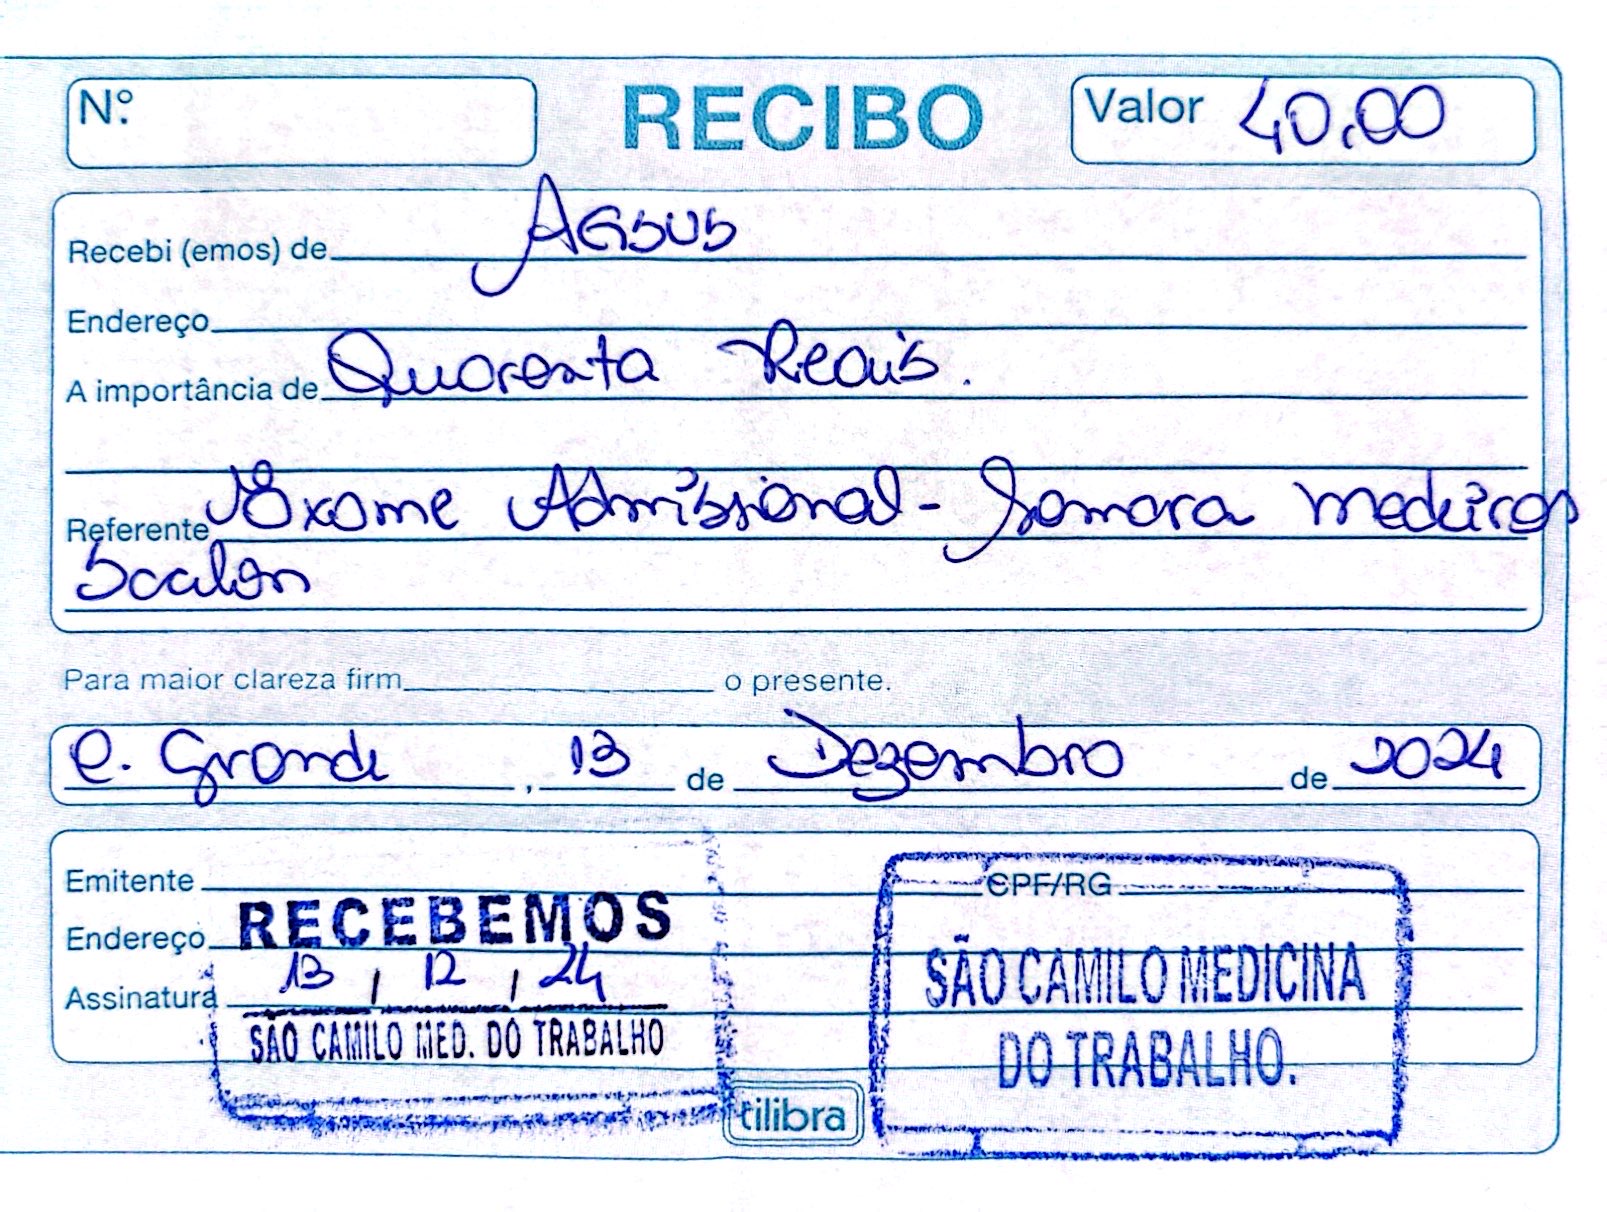 Nº
RECIBO
Valor 40,00
Recebi (emos) de AGSUS
Endereço
A importância de Quarenta Reais.
Referente Exame Admissional - Samara Medeiros
Scalon
Para maior clareza firm o presente.
C. Grande, 13 de Dezembro de 2024
Emitente
CPF/RG
Endereço
Assinatura
RECEBEMOS
13 / 12 / 24
SÃO CAMILO MED. DO TRABALHO
SÃO CAMILO MEDICINA
DO TRABALHO.
tilibra